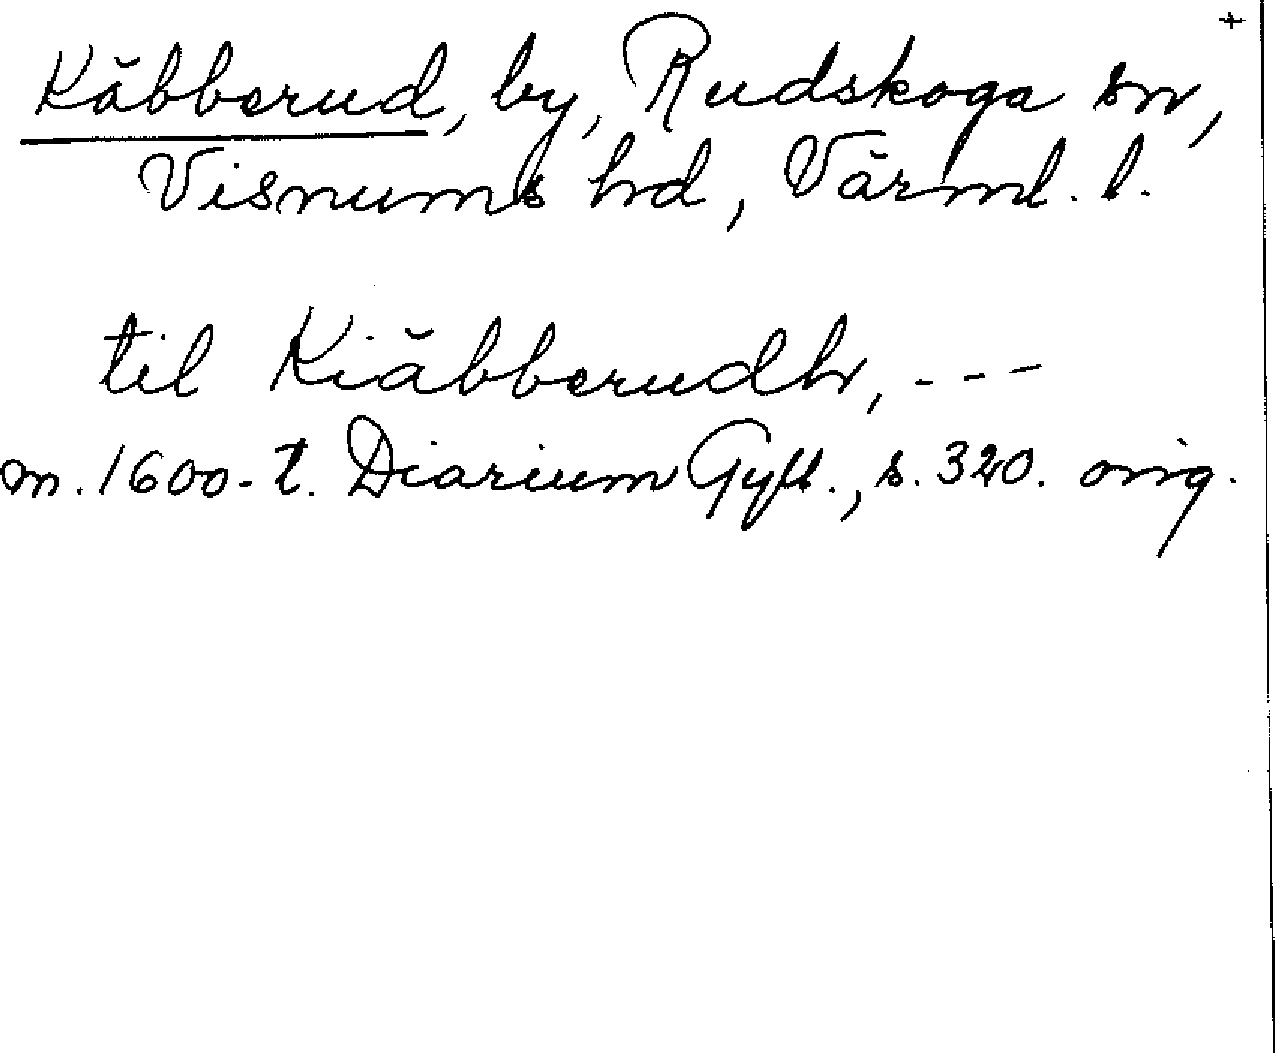 +
Käbberud, by, Rudskoga sn,
Visnums hd, Värml. l.
til Kiäbberudh, ---
m. 1600-t. Diarium Gyll., s. 320. orig.